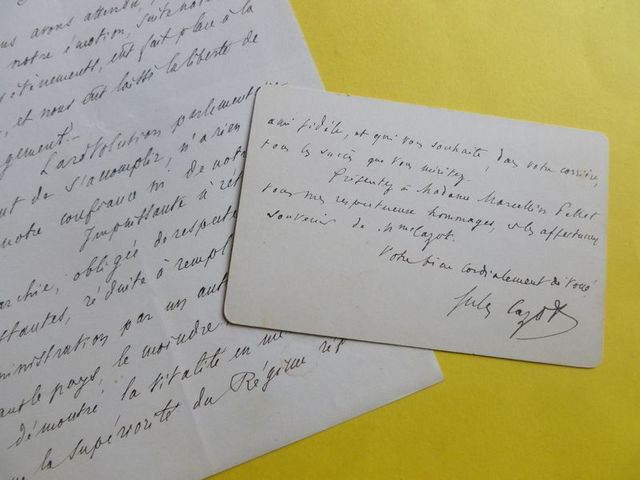 us avons attendu,
notre émotion, suite na
évènements, ont fait place à la
, et nous ont laissé la liberté de
gement.
La révolution parlement
nt de s'accomplir, n'a rien
notre confiance ni de notre
Impuissante à ré
archie, obligée de respect
stantes, réduite à rempl
ministration par un aut
ans le pays, le moindre
démontré la vitalité en me
la supériorité du Régime rép
ami fidèle, et qui vous souhaite, dans votre carrière,
tous les succès que vous méritez.
Présentez à Madame Marcellin Pellet
tous mes respectueux hommages, et les affectueux
souvenirs de Mme Cazot.
Votre bien cordialement dévoué
Jules Cazot